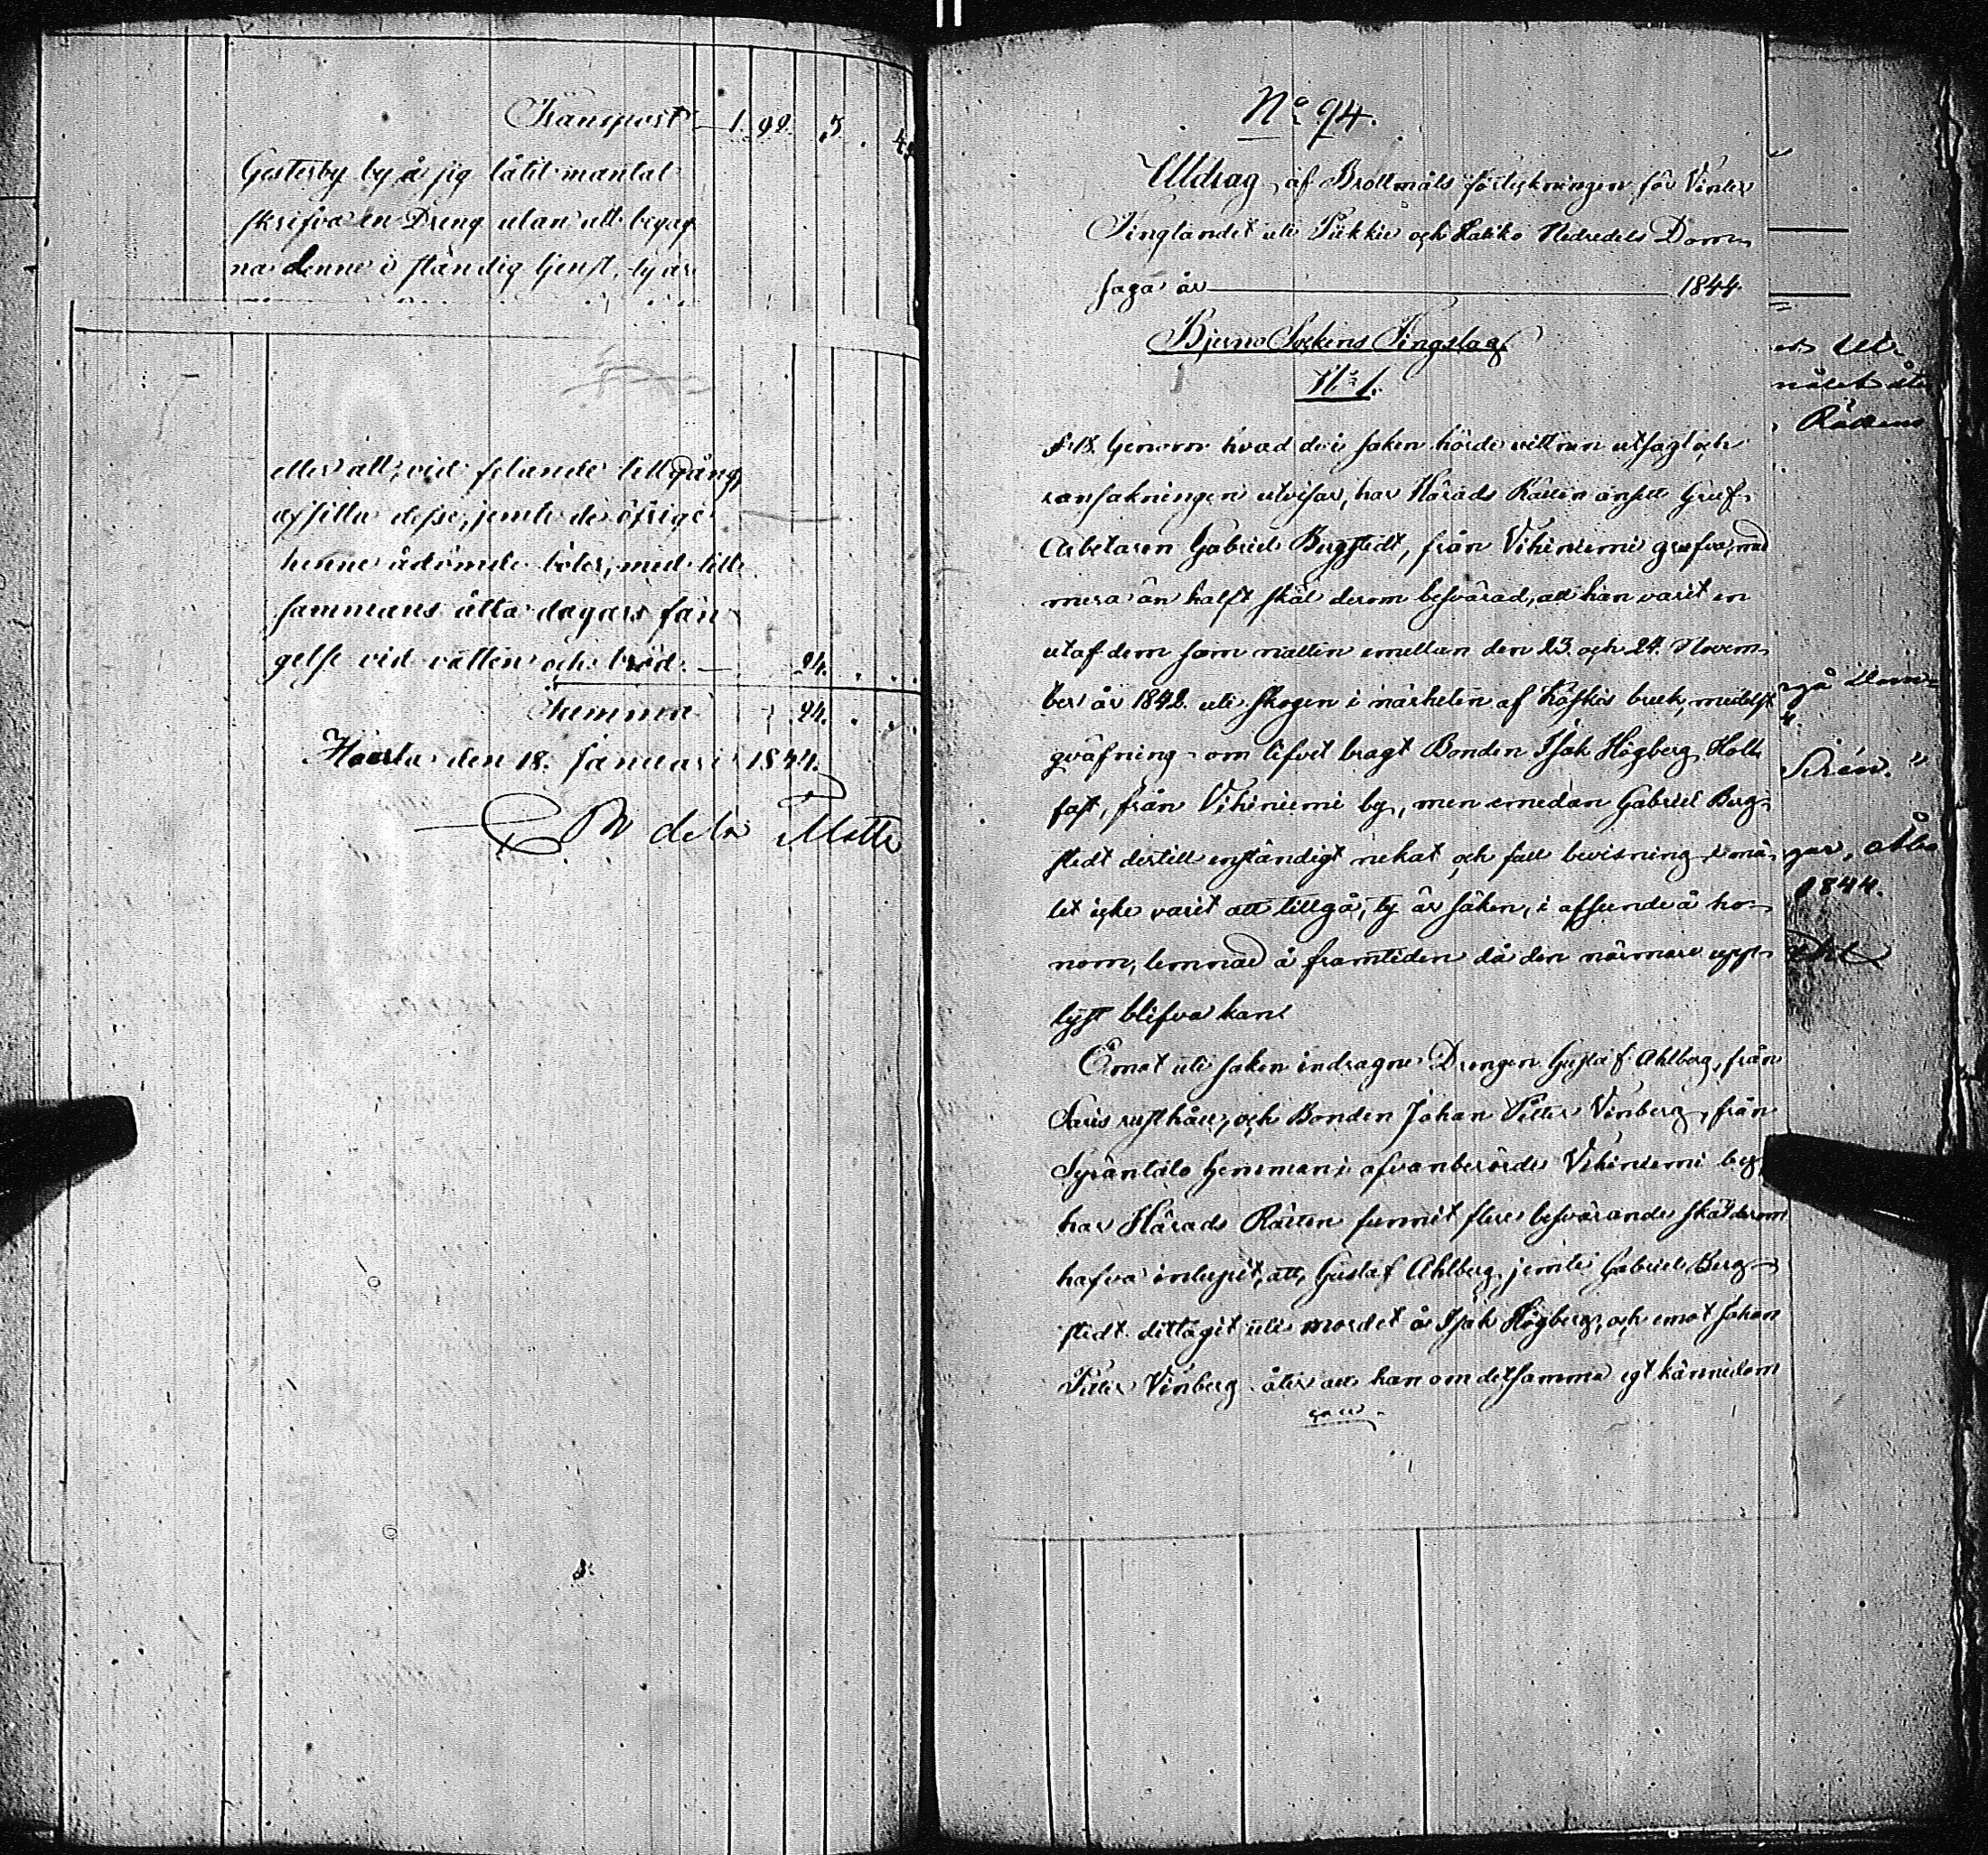 Transport 1. 92. 3. 4.
Gesterby by å sig låtit mantal
skrifva en Dreng utan att begag
na denne i ständig tjenst, ty är
eller att, vid felande tillgång,
afsitta desse, jemte de öfrige
henne ådömde böter, med till
sammans åtta dagars fän
gelse vid vatten och bröd. 24.
Summa 24.
den 18. Januari 1844.
de la Motte
No 94.
Utdrag af Brottmåls förtekningen för Vinter
Tinglandet uti Pikkie och Haliko Nedredels Dom
saga år 1844
Bjerno Sockens Tingslag
No 1.
§ 18. Genom hvad de i saken hörde vittnen utsagt och
ransakningen utvisar, har Härads Rätten ansett Gruf
Arbetaren Gabriel Bergstedt, från Vihiniemi grufva, med
mera än halft skäl derom besvärad, att han varit en
utaf dem som natten emellan den 23. och 24. Novem
ber år 1842. uti skogen i närheten af Koskis bruk, medelst
qväfning om lifvet bragt Bonden Isak Högberg Holl
fast, från Vihiniemi by, men emedan Gabriel Berg
stedt dertill enständigt nekat och full bevisning i må
let icke varit att tillgå, ty är saken, i afseende å ho
nom, lemnad å framtiden då den närmare upp
lyst blifva kan.
Emot uti saken indragne Drengen Gustaf Ahlberg, från
Saris rusthåll, och Bonden Johan Petter Vinberg, från
Syväntalo hemman i ofvanberörde Vihiniemi by,
har Härads Rätten funnit flere besvärande skäl derom
hafva inlupit, att, Gustaf Ahlberg jemte Gabriel Berg
stedt deltagit uti mordet å Isak Högberg, och emot Johan
Petter Vinberg åter att han om detsamma egt kännedom
målet åter
Rättens
Åbo
1844.